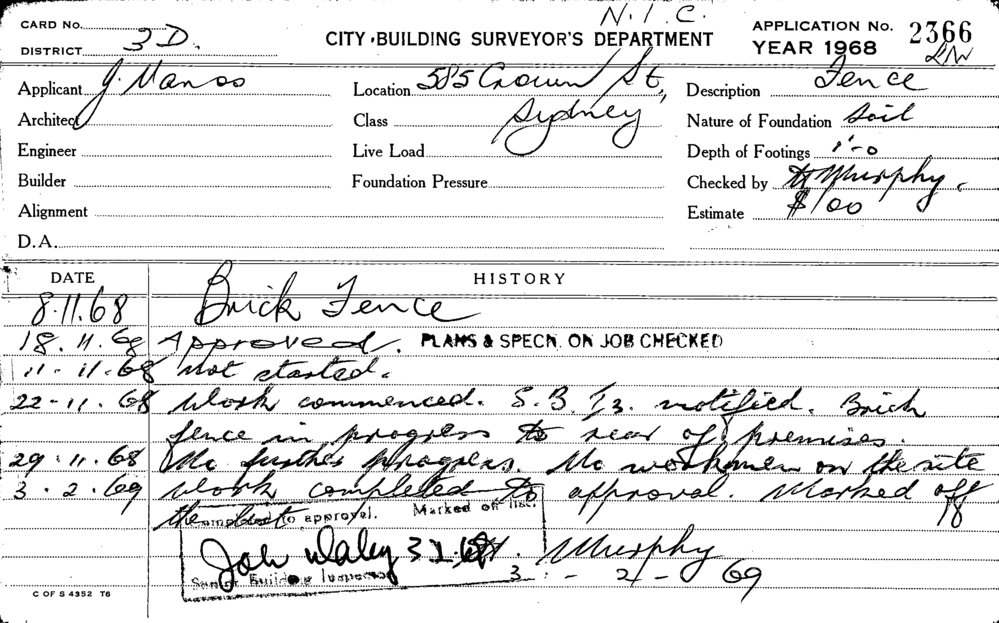 N.I.C.
CARD No.
DISTRICT 3D.
CITY BUILDING SURVEYOR'S DEPARTMENT
APPLICATION No. 2366
YEAR 1968
Applicant J. Manos
Location 585 Crown St,
Description Fence
Architect
Class Sydney
Nature of Foundation Soil
Engineer
Live Load
Depth of Footings 1'-0
Builder
Foundation Pressure
Checked by H Murphy.
Alignment
Estimate $100
D.A.
DATE HISTORY
8.11.68 Brick Fence
18.11.68 Approved. PLANS & SPECN. ON JOB CHECKED
11-11-68 Not started.
22-11.68 Work commenced. S.B.I3. notified. Brick
fence in progress to rear of premises.
29.11.68 No further progress. No workmen on the site
3.2.69 Work completed to approval. Marked off
the list
Completed to approval. Marked off list.
John Daley 3 2 69 H. Murphy
Senior Building Inspector
3-2-69
C OF S 4352 T6